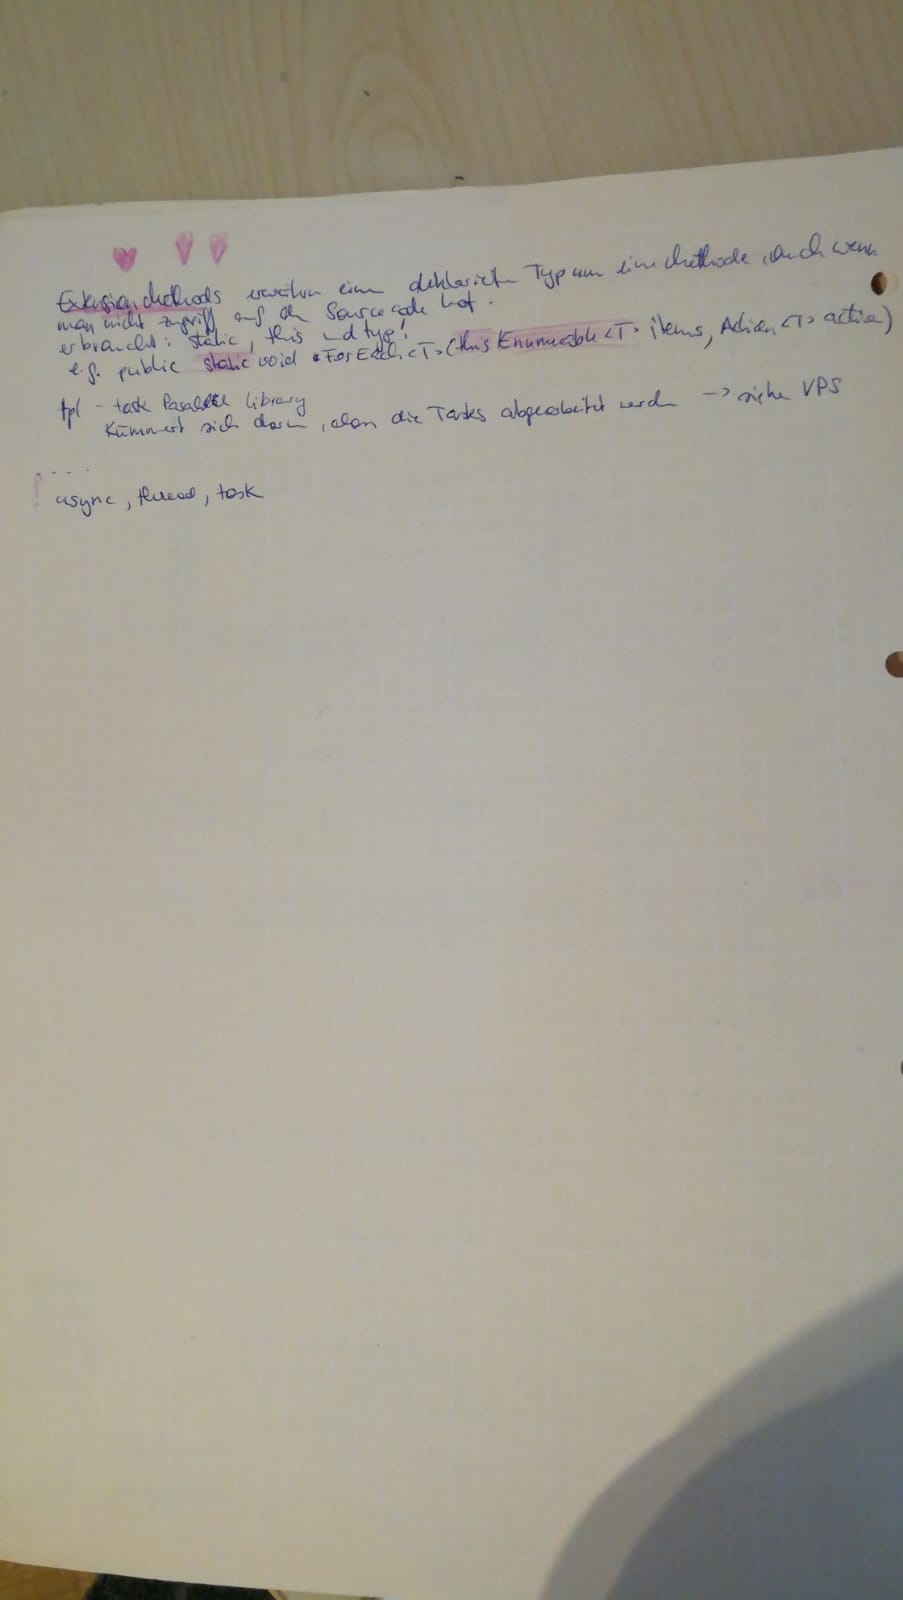 Extension Methods erweitern einen deklarierten Typ um eine Methode, auch wenn
man nicht zugriff auf den Sourcecode hat.
er braucht: static, this und type!
e.g. public static void ForEach<T>(this Enumerable<T> items, Action<T> action)
tpl - task Parallel library
Kümmert sich darum, dass die Tasks abgearbeitet werden -> siehe VPS
! ....
async, thread, task